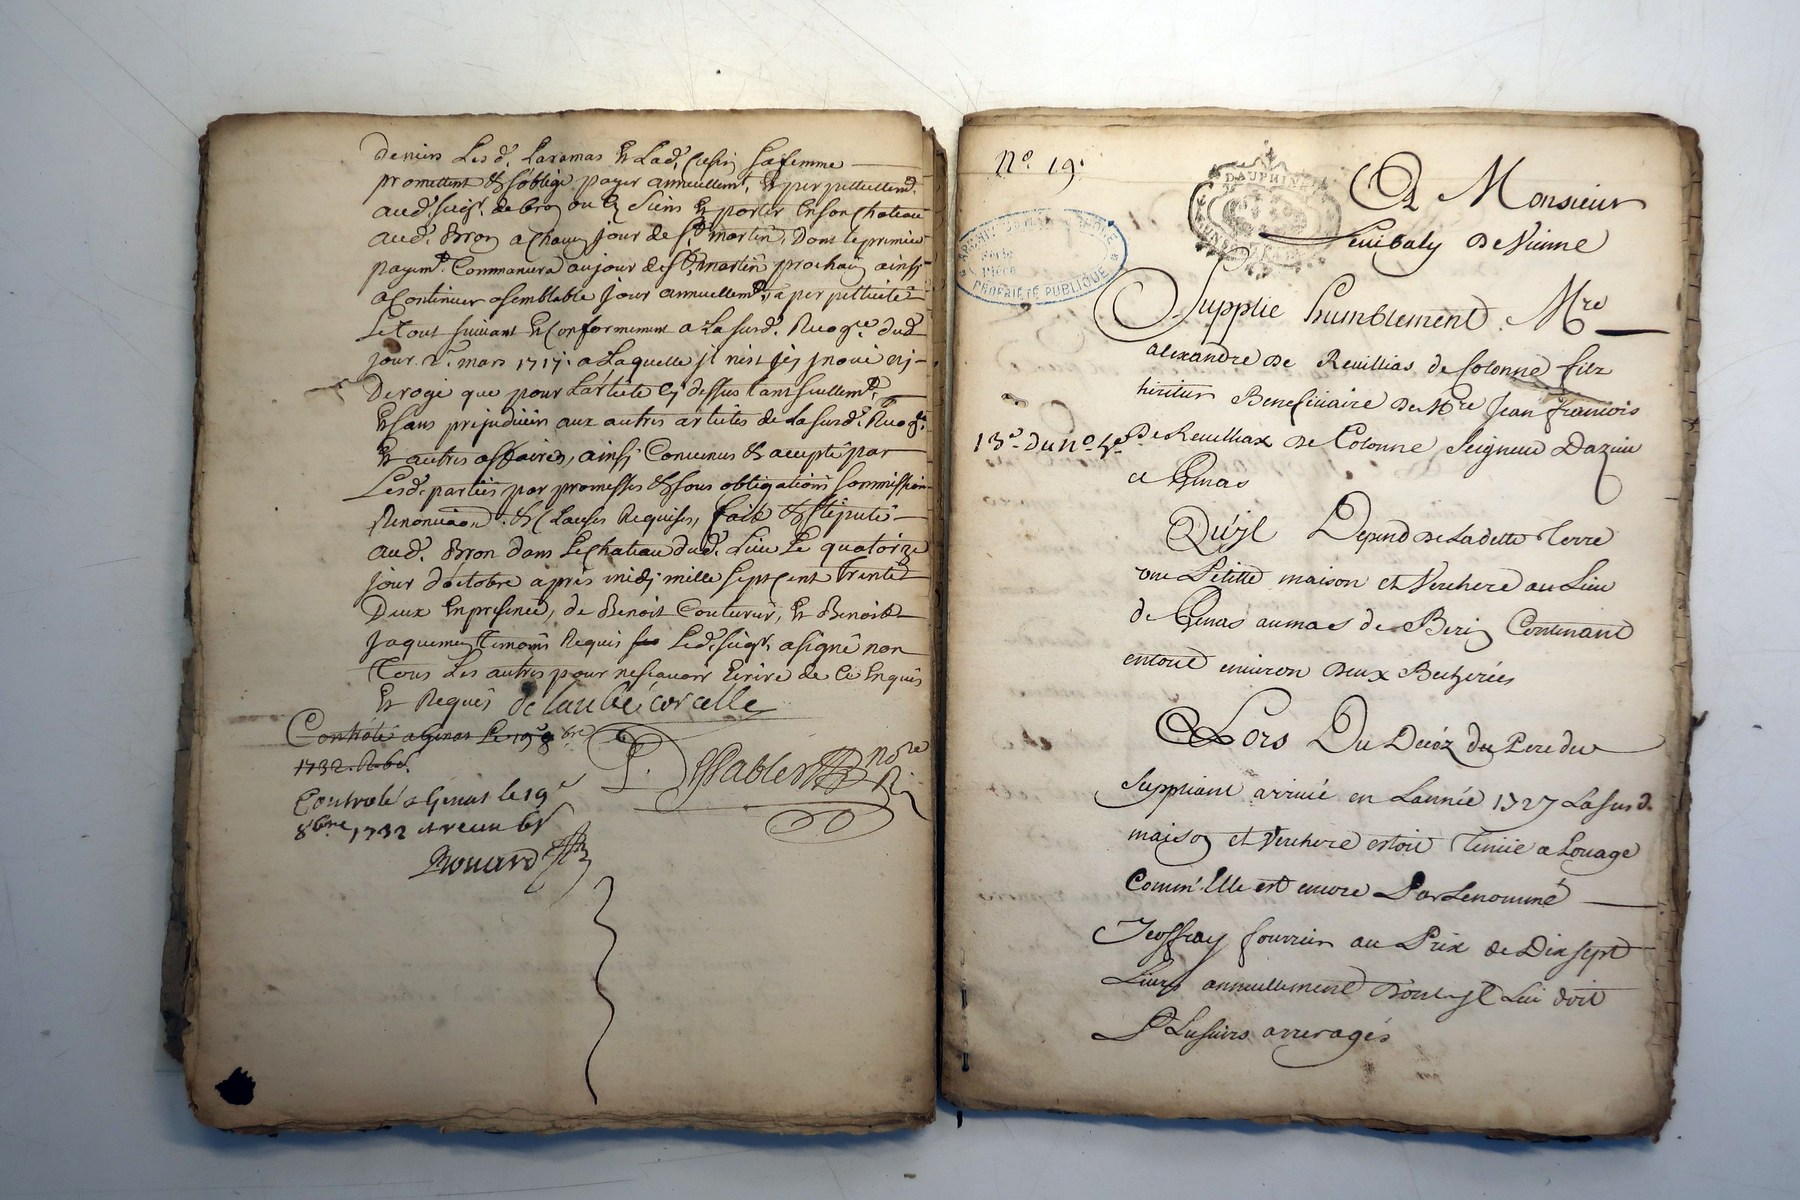 deniers Lesd. Laramas & Lad. Crespin sa femme
promettent & s'oblige payer annuellemt. & perpetuellemt.
aud. Seigr. de bron ou & siens & porter en son chateau
aud. Bron a chaq. jour de St. martin, Dont le premier
payemt. Commancera au jour de St. martin prochain ainsi
a Continuer a semblable jour annuellemt. a perpettuité
Le tout suivant & Conformement a La susd. Recogce. dud.
jour mars 1717. a Laquelle jl n'est jnnové nj
Derogé que pour L'article cj dessus tant seullemt.
& sans prejudicier aux autres articles de La susd. Recogce.
& autres affaires, ainsi Convenus & accepté par
Lesd. parties par promesses & sous obligations sommission
Renonciaon. & Clauses Requises, fait & stiputé
aud. Bron dans Le chateau dud. Lieu Le quatorze
jour d'octobre après midj mille sept cent trente
Deux En presence, de Benoit Couturier, & Benoist
Jaquemet temoins Requis Led. Seigr. a signé non
tous Les autres pour ne scavoir Ecrire de Ce Enquis
& Requis de laube corcelle
Contrôlé a Genas Le 19e 8bre
1732. R. 6s.
Controlé a Genas le 19e
8bre 1732 et recu 6s
Bouard
nore
No. 19.
DAUPHINÉ
ARCHIVES RHÔNE
PROPRIÉTÉ PUBLIQUE
A Monsieur
Levibaly De Vienne
Supplie humblement Mre
alexandre De Reuillias de Colonne fils
heritier Beneficiaire De Mre Jean francois
13e. Du no. 5e.
De Reuilliax De Colonne Seigneur Dazieu
et Genas
Qu'jl Depend De Ladette Terre
une Petitte maison et Verchere au Lieu
de Genas au mas de Berin Contenant
entout environ Deux Bicherées
Lors Du Decéz du Pere du
Suppliant arrivé en Lannée 1727 La susd.
maison et Verchere estoit Tenüe a Louage
Comm'Elle est encore Par Le nommé
Jeoffray fourrier au Prix de Dix sept
Livres annuellement Dont jl Lui doit
Plusieurs arreragés